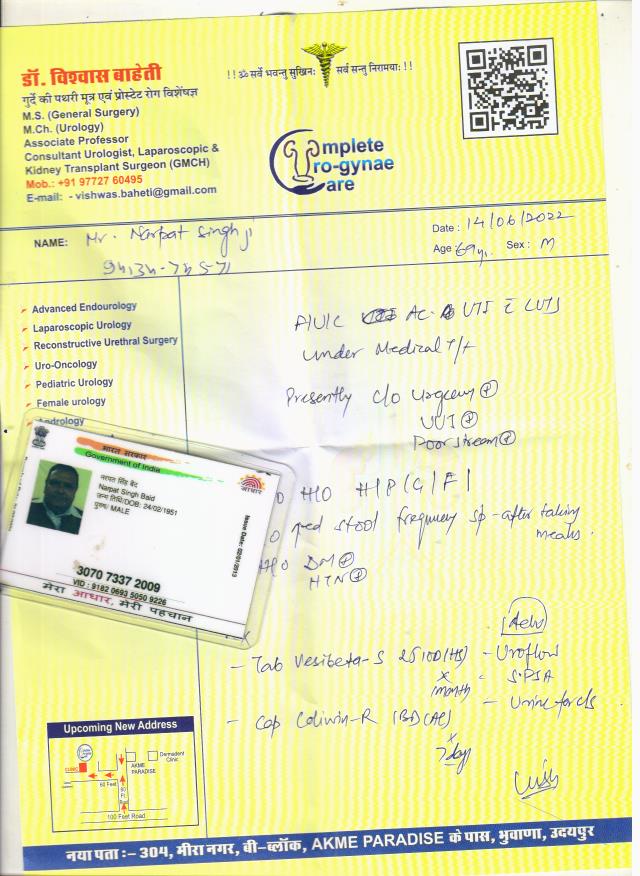 डॉ. विश्वास बाहेती
गुर्दे की पथरी मूत्र एवं प्रोस्टेट रोग विशेषज्ञ
M.S. (General Surgery)
M.Ch. (Urology)
Associate Professor
Consultant Urologist, Laparoscopic &
Kidney Transplant Surgeon (GMCH)
Mob.: +91 97727 60495
E-mail: - vishwas.baheti@gmail.com
!! ॐ सर्वे भवन्तु सुखिनः सर्वे सन्तु निरामयाः !!
omplete
ro-gynae
are
NAME: Mr. Narpat Singh ji
Date: 14/06/2022
Age 69 yr. Sex: M
Advanced Endourology
Laparoscopic Urology
Reconstructive Urethral Surgery
Uro-Oncology
Pediatric Urology
Female urology
Andrology
AC. UTI c LUTS
Under Medical T/t
Presently c/o Urgency +
UUI +
Poor stream +
H/O H/P/G/F/
stool frequency after taking
meals.
H/O DM +
HTN +
भारत सरकार
Government of India
नरपत सिंह बैद
Narpat Singh Baid
जन्म तिथि/DOB: 24/02/1951
पुरुष/ MALE
आधार
Issue Date: 02/01/2013
3070 7337 2009
VID : 9182 0693 5050 9226
मेरा आधार, मेरी पहचान
Adv
- Tab Vesibeta-S 25 1OD (HS)
x
1month
- Cap Coliwin-R (BD) (AC)
x
7day
- Uroflow
- S.PSA
- Urine for c/s
Upcoming New Address
CLINIC
AKME
PARADISE
Dermadent
Clinic
60 Feet
60
Ft.
Road
100 Feet Road
नया पता :- 304, मीरा नगर, बी-ब्लॉक, AKME PARADISE के पास, भुवाणा, उदयपुर